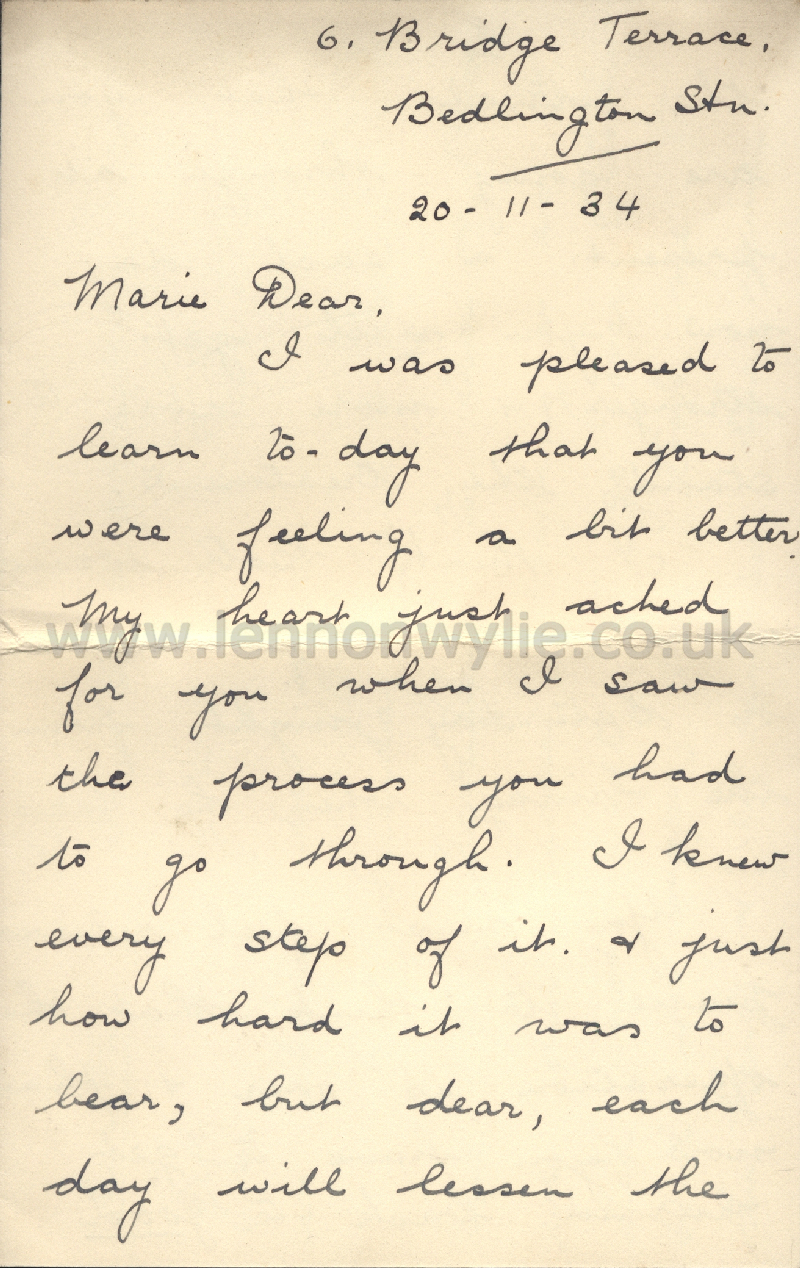 6. Bridge Terrace,
Bedlington Stn.
20 - 11 - 34
Marie Dear,
I was pleased to
learn to-day that you
were feeling a bit better.
My heart just ached
www.lennonwylie.co.uk
for you when I saw
the process you had
to go through. I knew
every step of it. & just
how hard it was to
bear, but dear, each
day will lessen the